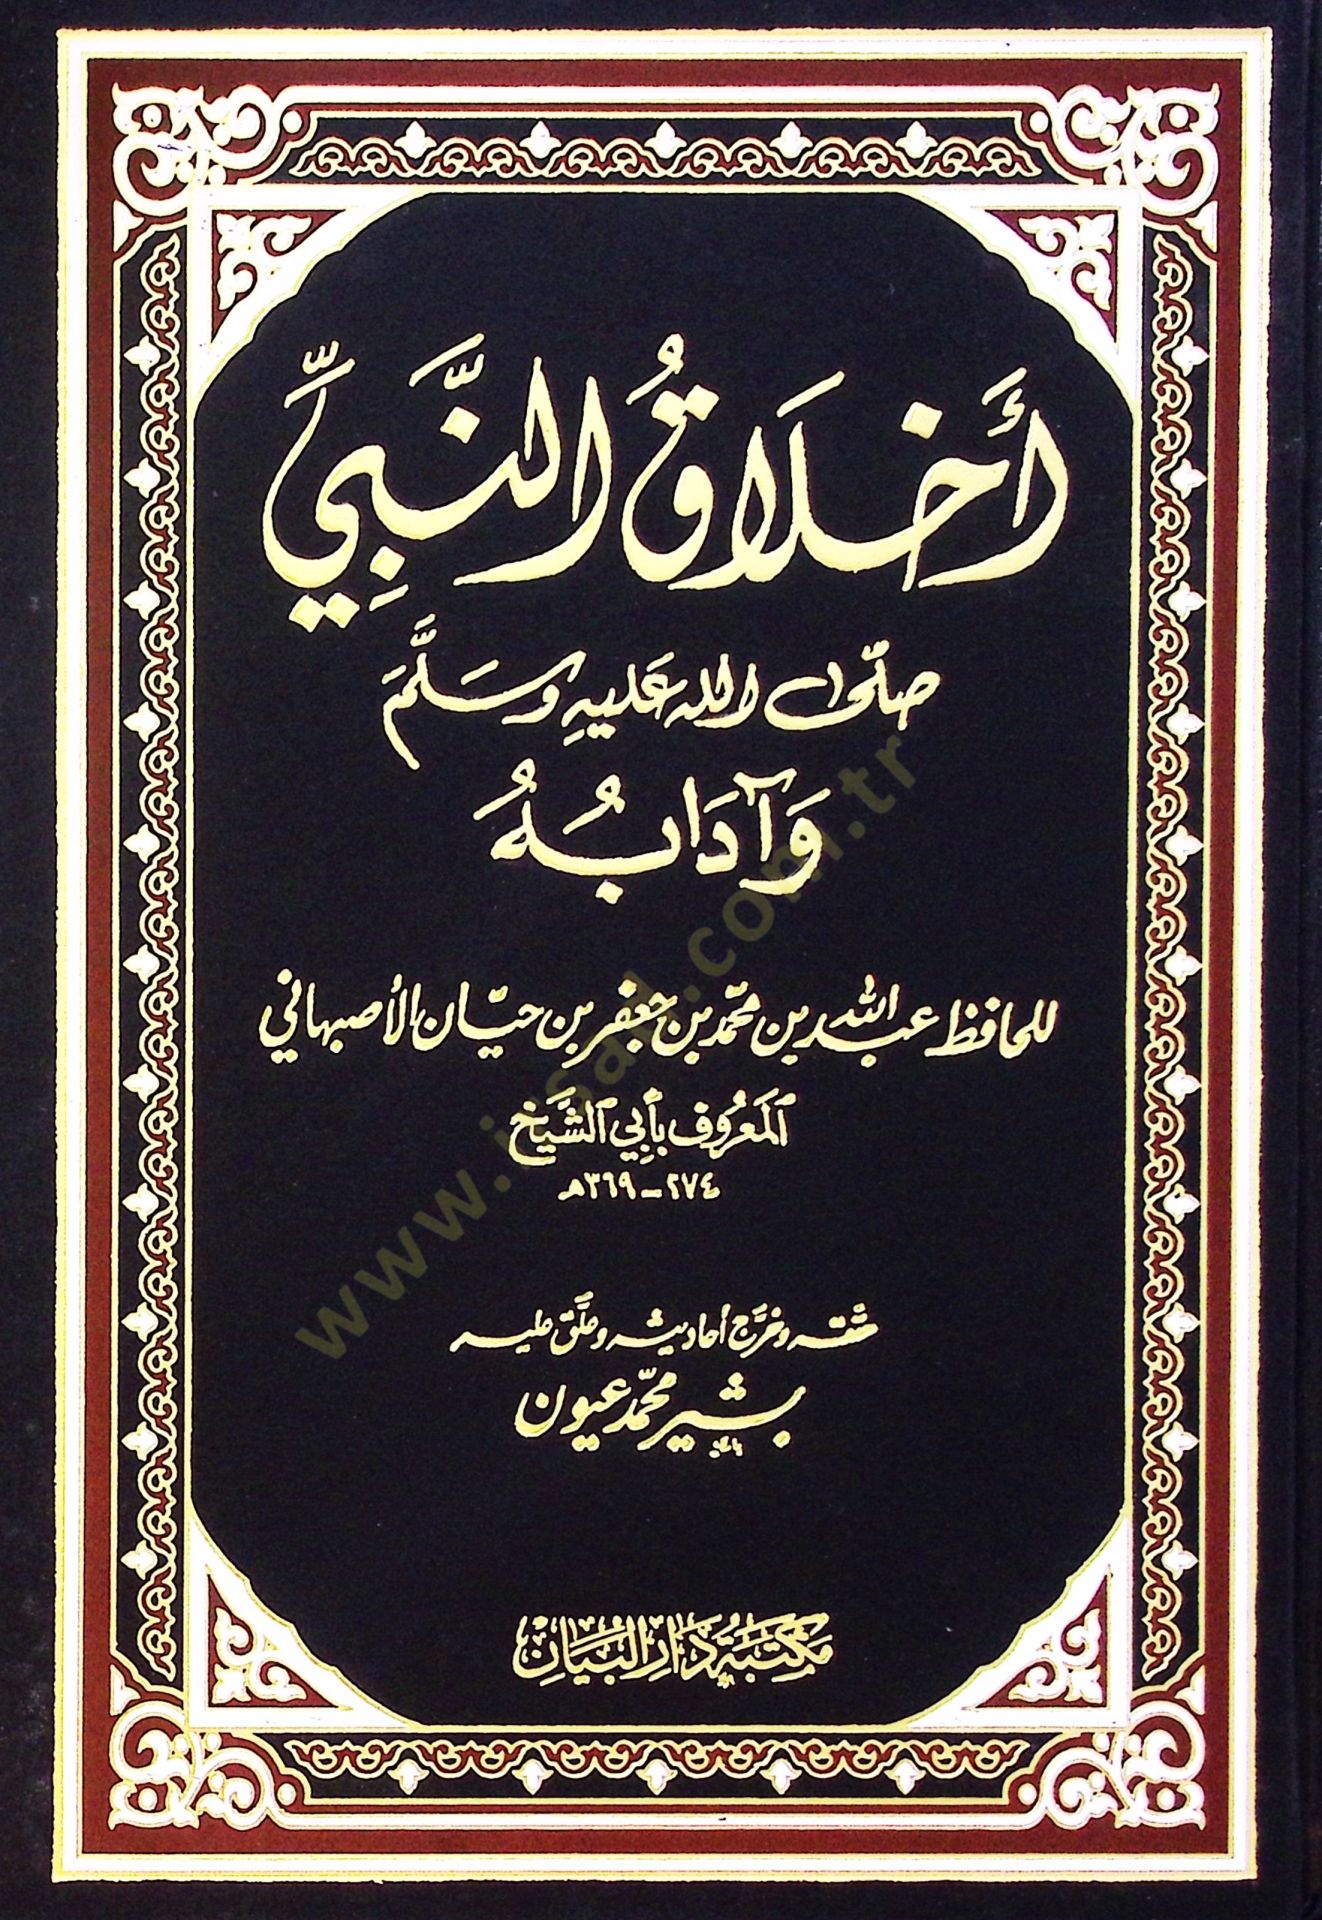 أَخْلَاقُ النَّبِيِّ
صلّى الله عَليهِ وَسَلَّمَ
وَآدَابُهُ
للحافظ عبد الله بن محمّد بن جعفر بن حيّان الأصبهاني
المَعرُوف بأبي الشَّيخ
٢٧٤ - ٣٦٩هـ
حققه وخرّج أحاديثه وعلّق عليه
بشير محمّد عيون
مَكتَبَةُ دَارِ البَيَانِ
www.irsad.com.tr